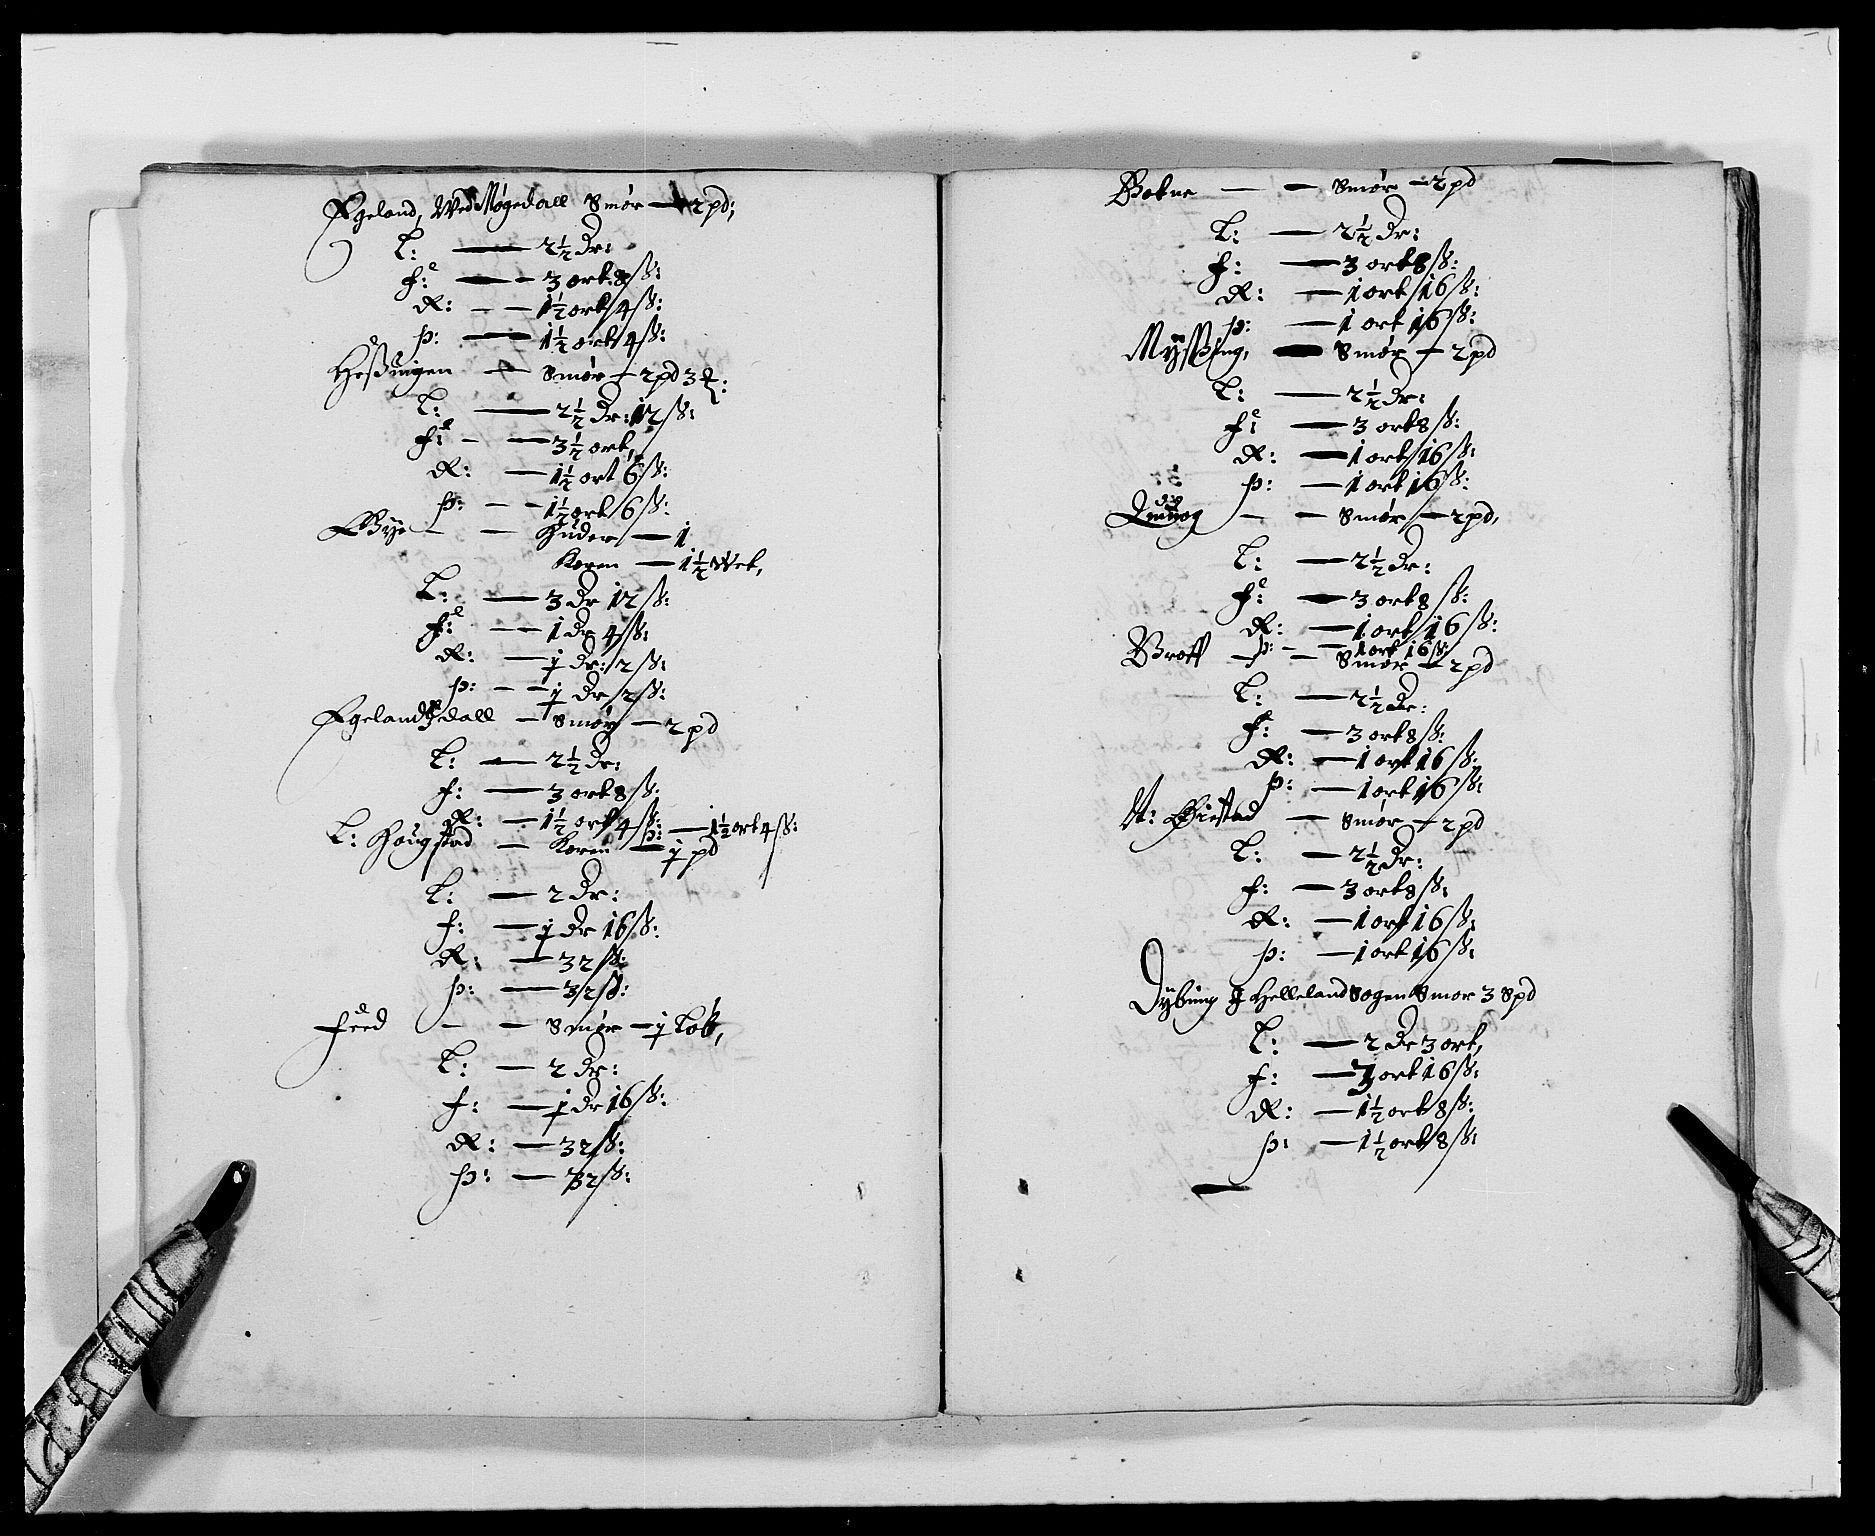 Egeland, Wed Møgedall Smør — 2 pd;
L: — 2½ dr:
f: — 3 ort 8 ß:
R: — 1½ ort 4 ß:
þ: — 1½ ort 4 ß:
Heßuigen — Smør — 2 pd 3
L: — 2½ dr: 12 ß:
f: — 3½ ort,
R: — 1½ ort 6 ß:
þ: — 1½ ort 6 ß:
Bÿe — — Huder — 1
Koren — 1½ Wet,
L: — 3 dr 12 ß:
f: — 1 dr 4 ß:
R: — j dr: 2 ß:
þ: — j dr, 2 ß:
Egelandsdall — Smør — 2 pd
L: — 2½ dr:
f: — 3 ort 8 ß:
R: — 1½ ort 4 ß: þ: — 1½ ort 4 ß:
L: Hougstad — Koren — j pd
L: — 2 dr:
f: — j dr 16 ß:
R: — 32 ß:
þ: — 32 ß:
Feed — — Smør — j Løb,
L: — 2 dr:
f: — j dr 16 ß:
R: — 32 ß:
þ: — 32 ß:
— — Smør — 2 pd
L: — 2½ dr:
f: — 3 ort 8 ß:
R: — 1 ort 16 ß:
þ: — 1 ort 16 ß:
Mÿßing, — Smør — 2 pd
L: — 2½ dr:
f: — 3 ort 8 ß:
R: — 1 ort 16 ß:
þ: — 1 ort 16 ß:
— — Smør — 2 pd,
L: — 2½ dr:
f: — 3 ort 8 ß:
R: — 1 ort 16 ß:
þ: — 1 ort 16 ß:
Broff — — Smør — 2 pd
L: — 2½ dr:
f: — 3 ort 8 ß:
R: — 1 ort 16 ß:
þ: — 1 ort 16 ß:
Øiestad — Smør — 2 pd
L: — 2½ dr:
f: — 3 ort 8 ß:
R: — 1 ort 16 ß:
þ: — 1 ort 16 ß:
Dÿbing J Helleland Sogen Smør 3 Spd
L: — 2 dr 3 ort,
f: — 3 ort 16 ß:
R: — 1½ ort 8 ß:
þ: — 1½ ort 8 ß: